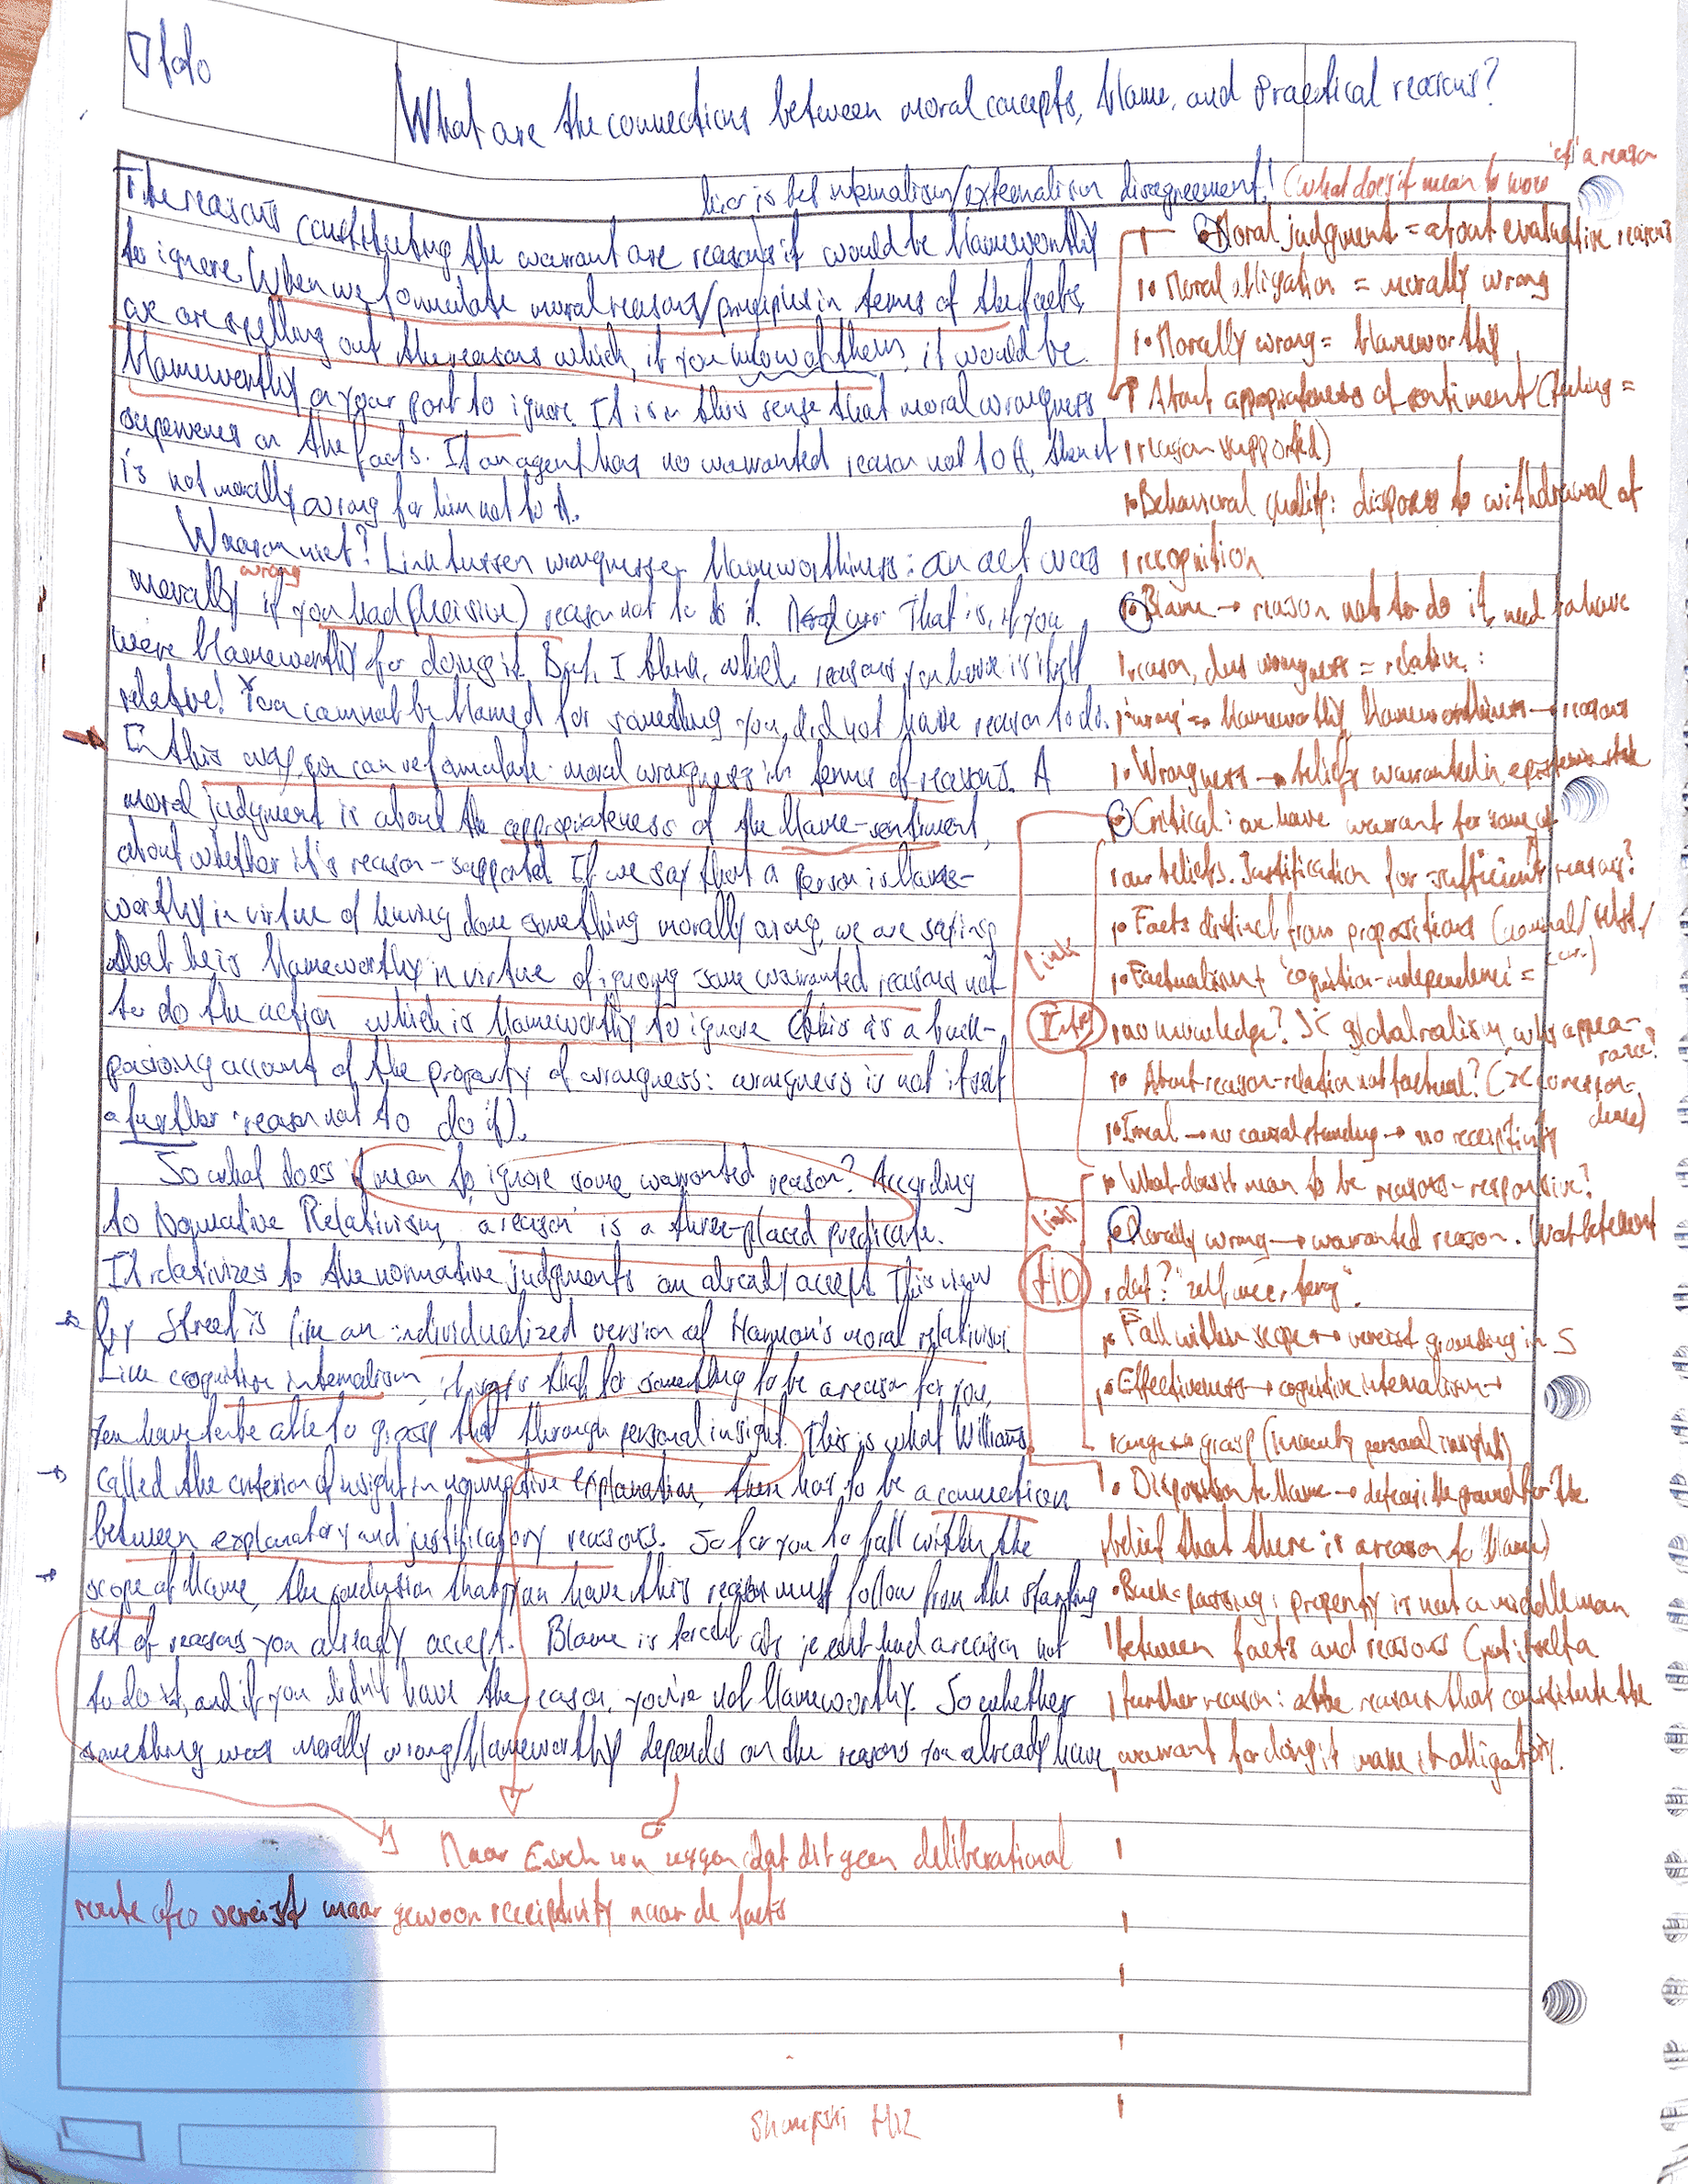 What are the connections between moral concepts, blame, and practical reasons?
hier is het internalism/externalism disagreement! (what does it mean to know of a reason
The reasons constituting the warrant are reasons it would be blameworthy
to ignore (When we formulate moral reasons/principles in terms of the facts,
we are spelling out the reasons which, if you know of them, it would be
blameworthy on your part to ignore. It is in this sense that moral wrongness
supervenes on the facts. If an agent has no warranted reason not to A, then it
is not morally wrong for him not to A.
Waarom niet? Link tussen wrongness en blameworthiness: an act was
morally wrong if you had (decisive) reason not to do it. That is, if you
were blameworthy for doing it. But, I think, which reasons you have is itself
relative! You cannot be blamed for something you did not have reason to do.
In this way, you can reformulate moral wrongness in terms of reasons. A
moral judgment is about the appropriateness of the blame-sentiment,
about whether it's reason-supported. If we say that a person is blame-
worthy in virtue of having done something morally wrong, we are saying
that he is blameworthy in virtue of ignoring some warranted reasons not
to do the action which is blameworthy to ignore (this is a buck-
passing account of the property of wrongness: wrongness is not itself
a further reason not to do it).
So what does it mean to ignore some warranted reason? According
to Normative Relativism, 'a reason' is a three-placed predicate.
It relativizes to the normative judgments an already accept. This view
by Street is like an individualized version of Harman's moral relativism.
Like cognitive internalism, it says that for something to be a reason for you,
you have to be able to grasp that through personal insight. This is what Williams
called the criterion of insight in normative explanation, there has to be a connection
between explanatory and justificatory reasons. So for you to fall within the
scope of blame, the conclusion that you have this reason must follow from the starting
set of reasons you already accept. Blame is terecht als je echt had a reason not
to do it, and if you didn't have the reason, you're not blameworthy. So whether
something was morally wrong/blameworthy depends on the reasons you already have,
Maar Enoch kan zeggen dat dit geen deliberational
route ofzo vereist maar gewoon receiptivity naar de facts
Moral judgment = about evaluative reasons
Moral obligation = morally wrong
Morally wrong = blameworthy
About appropriateness of sentiment (feeling =
reason supported)
Behavioural quality: disposes to withdrawal of
recognition
Blame → reason not to do it, need to have
reason, dus wrongness = relative:
'wrong' → blameworthy, blameworthiness → reasons
Wrongness → beliefs warranted in epistemic
Critical: we have warrant for some of
our beliefs. Justification for sufficient reasons?
Facts distinct from propositions (nominal/
Factualism + 'cognition-independence' =
no knowledge? >< global realism, why appea-
rance?
About reason-relation not factual? (>< correspon-
dence)
Irreal → no causal standing → no receiptivity
What does it mean to be reasons-responsive?
Morally wrong → warranted reason. Wat betekent
dat?
Fall within scope → vereist grounding in S
Effectiveness → cognitive internalism →
range → grasp (through personal insight)
Disposition to blame → defeasible ground for the
belief that there is a reason to blame)
Buck-passing: property is not a middle man
between facts and reasons (not itself a
further reason: the reasons that constitute the
warrant for doing it make it obligatory.
link
link